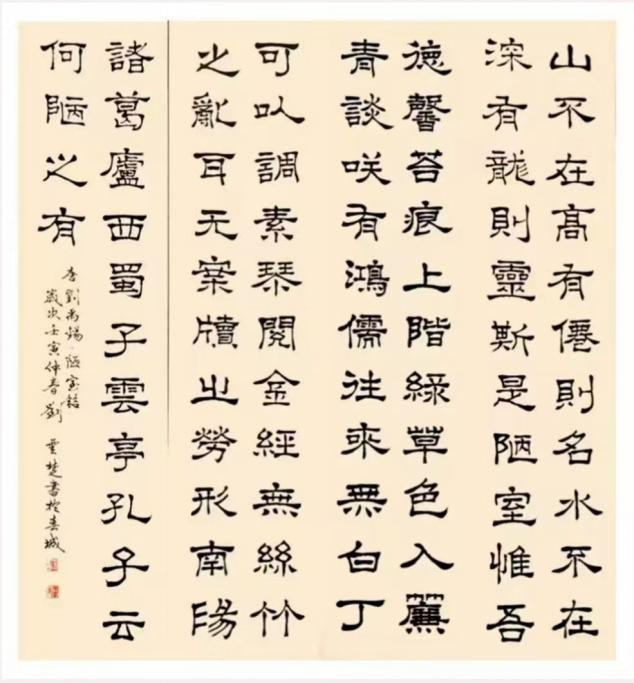 山不在髙有僊則名水不在
深有龍則靈斯是陋室惟吾
德馨苔痕上階緑草色入簾
青談咲有鴻儒往來無白丁
可以調素琴閱金經無絲竹
之亂耳无案牘之勞形南陽
諸葛廬西蜀子雲亭孔子云
何陋之有
唐劉禹锡·陋室铭
歲次壬寅仲春劉雲楚書於春城